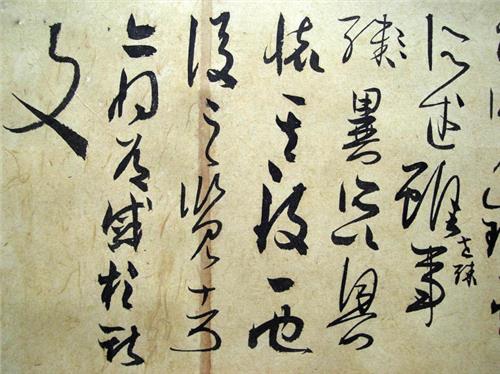 所述雖世殊事
異所以興
懷其致一也
後之覽者
亦將有感於斯
文